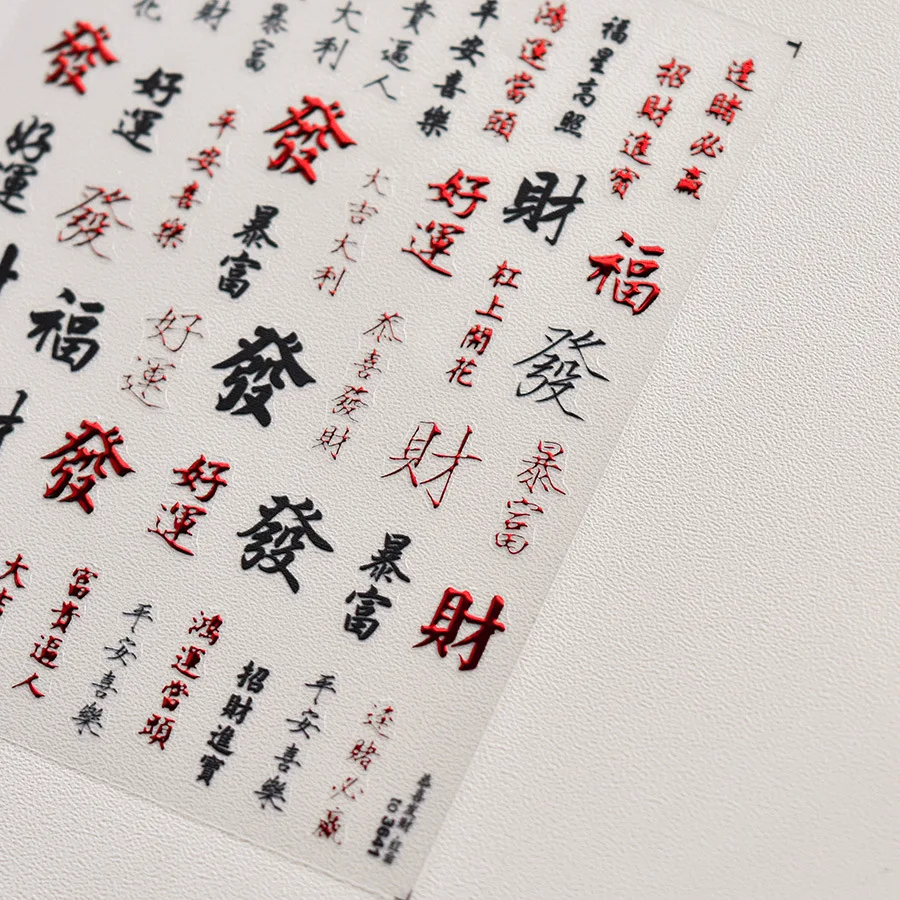 花
財
暴富
大利
貴逼人
平安喜樂
鴻運當頭
福星高照
招財進寶
逢賭必贏
發
好運
平安喜樂
發
大吉大利
好運
財
福
好運
發
暴富
杠上開花
發
福
好運
發
恭喜發財
財
暴富
發
好運
發
暴富
財
大吉
富貴逼人
平安喜樂
鴻運當頭
招財進寶
平安喜樂
逢賭必贏
恭喜发财
to 3641